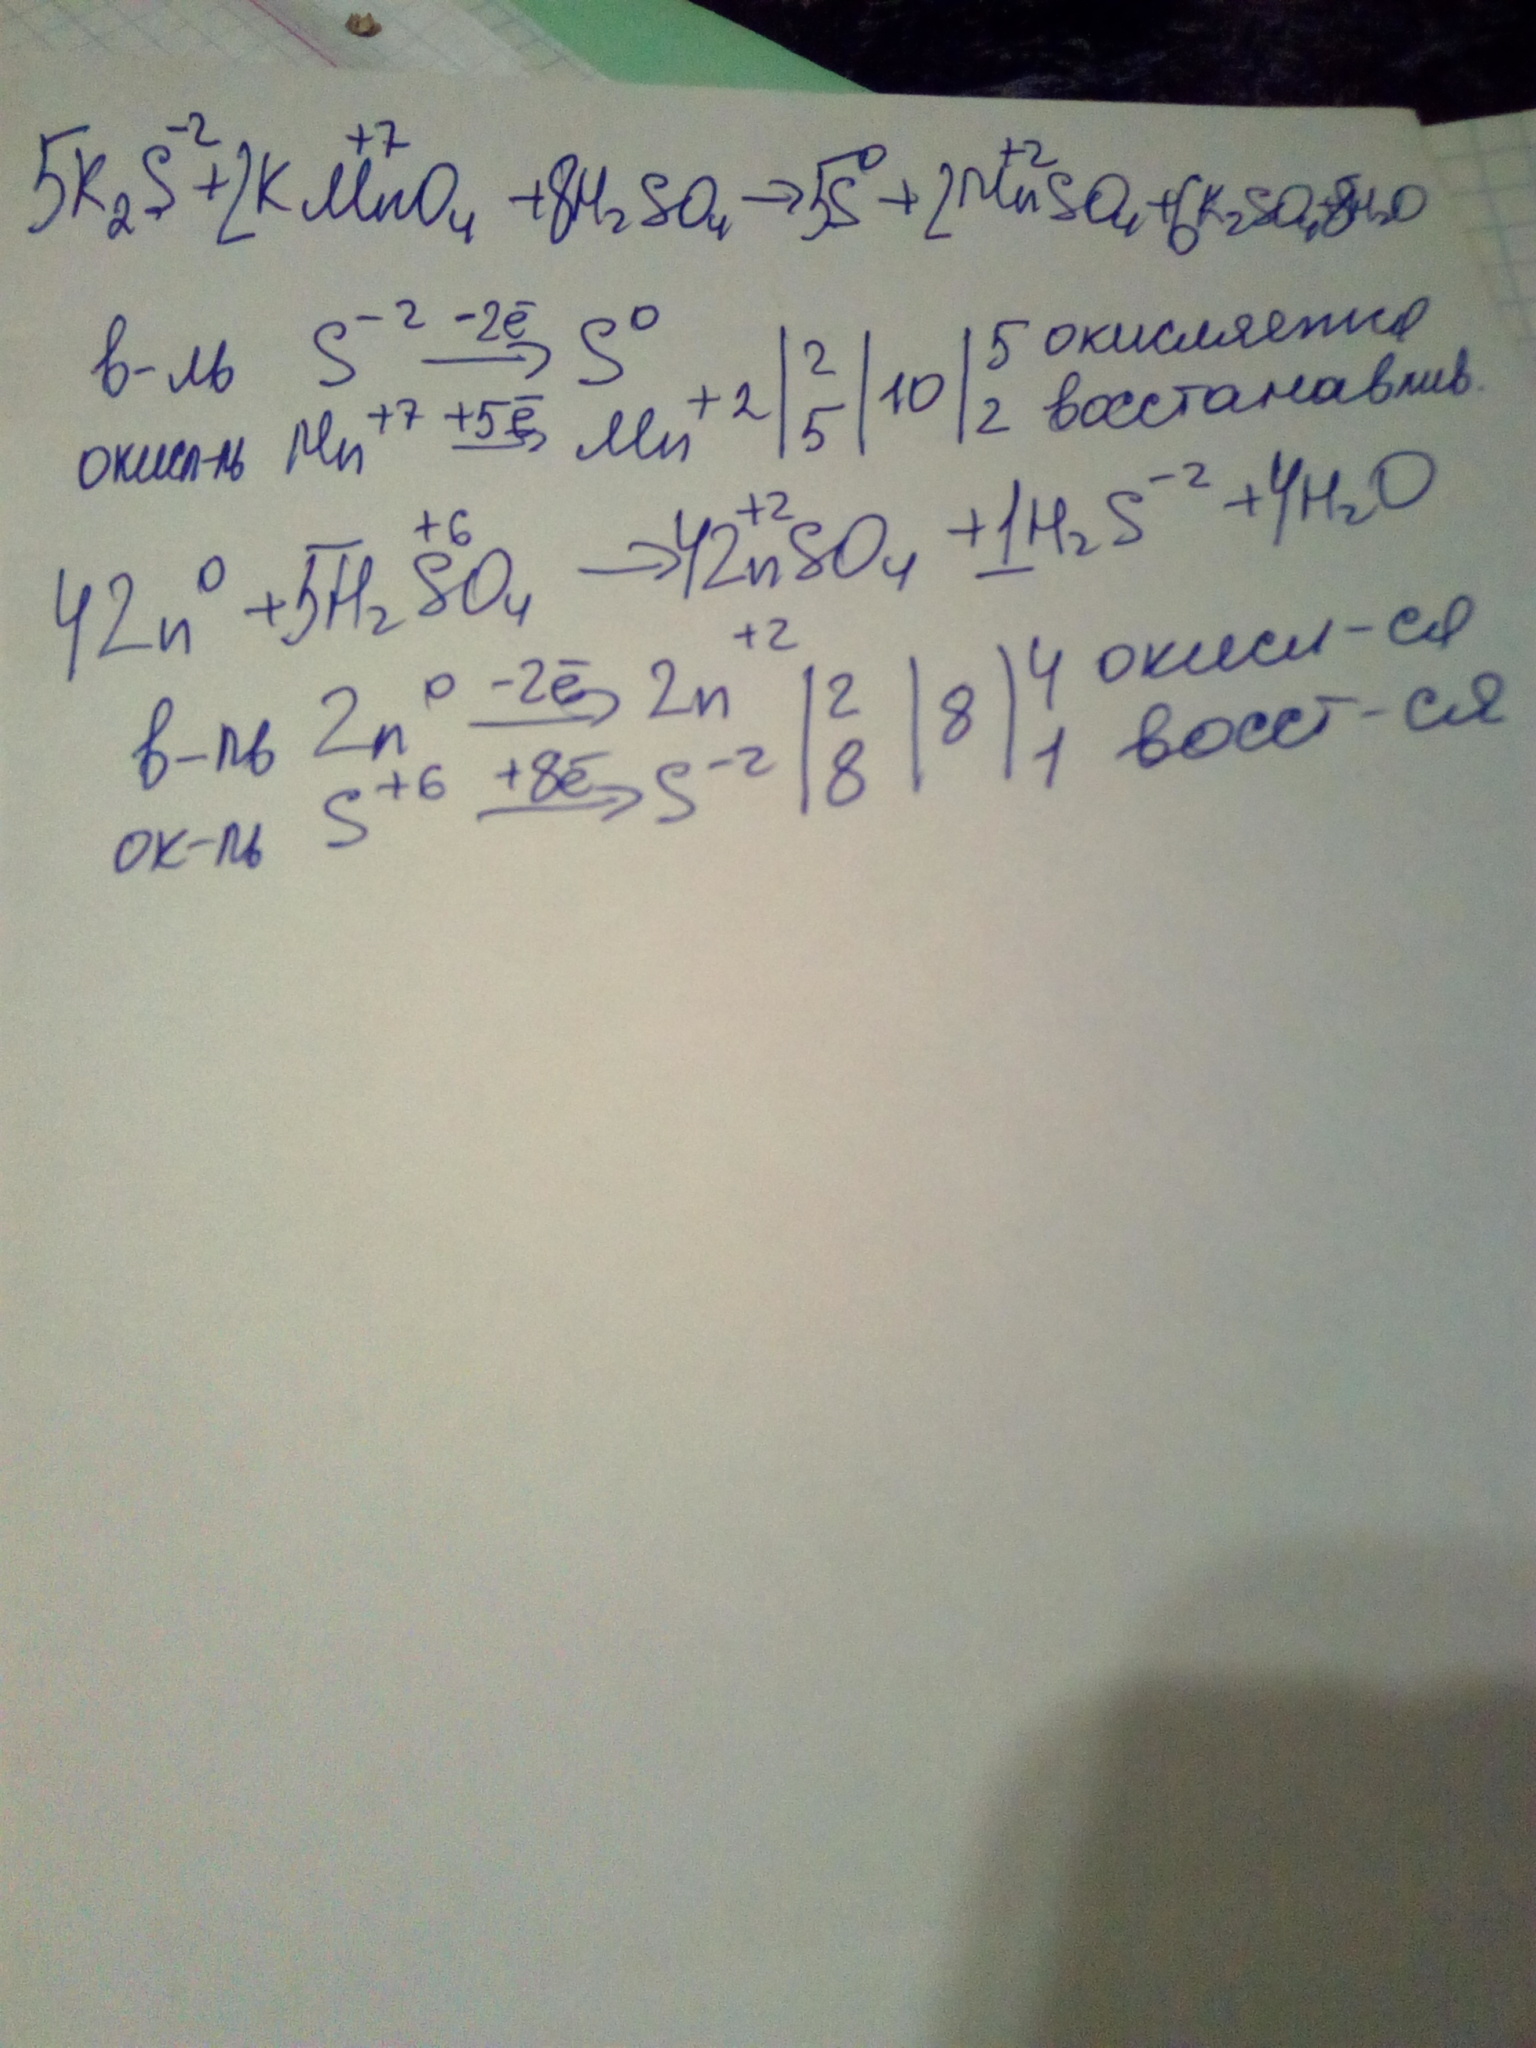 5K₂S⁻² + 2KMn⁺⁷O₄ + 8H₂SO₄ → 5S⁰ + 2Mn⁺²SO₄ + 6K₂SO₄ + 8H₂O
в-ль S⁻² -2ē → S⁰ | 2 | 10 | 5 окисляется
окисл-ль Mn⁺⁷ +5ē → Mn⁺² | 5 | | 2 восстанавлив.
4Zn⁰ + 5H₂S⁺⁶O₄ → 4Zn⁺²SO₄ + 1H₂S⁻² + 4H₂O
в-ль Zn⁰ -2ē → Zn⁺² | 2 | 8 | 4 окисл-ся
ок-ль S⁺⁶ +8ē → S⁻² | 8 | | 1 восст-ся